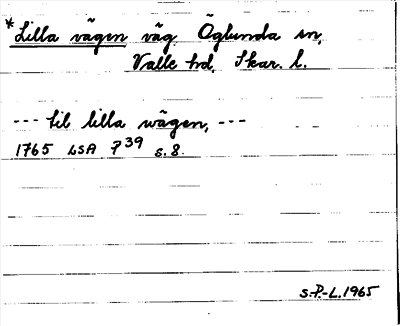 *Lilla vägen väg Öglunda sn,
Valle hd, Skar. l.
--- til lilla wägen, ---
1765 LSA P39 s. 8.
S.P.-L. 1965